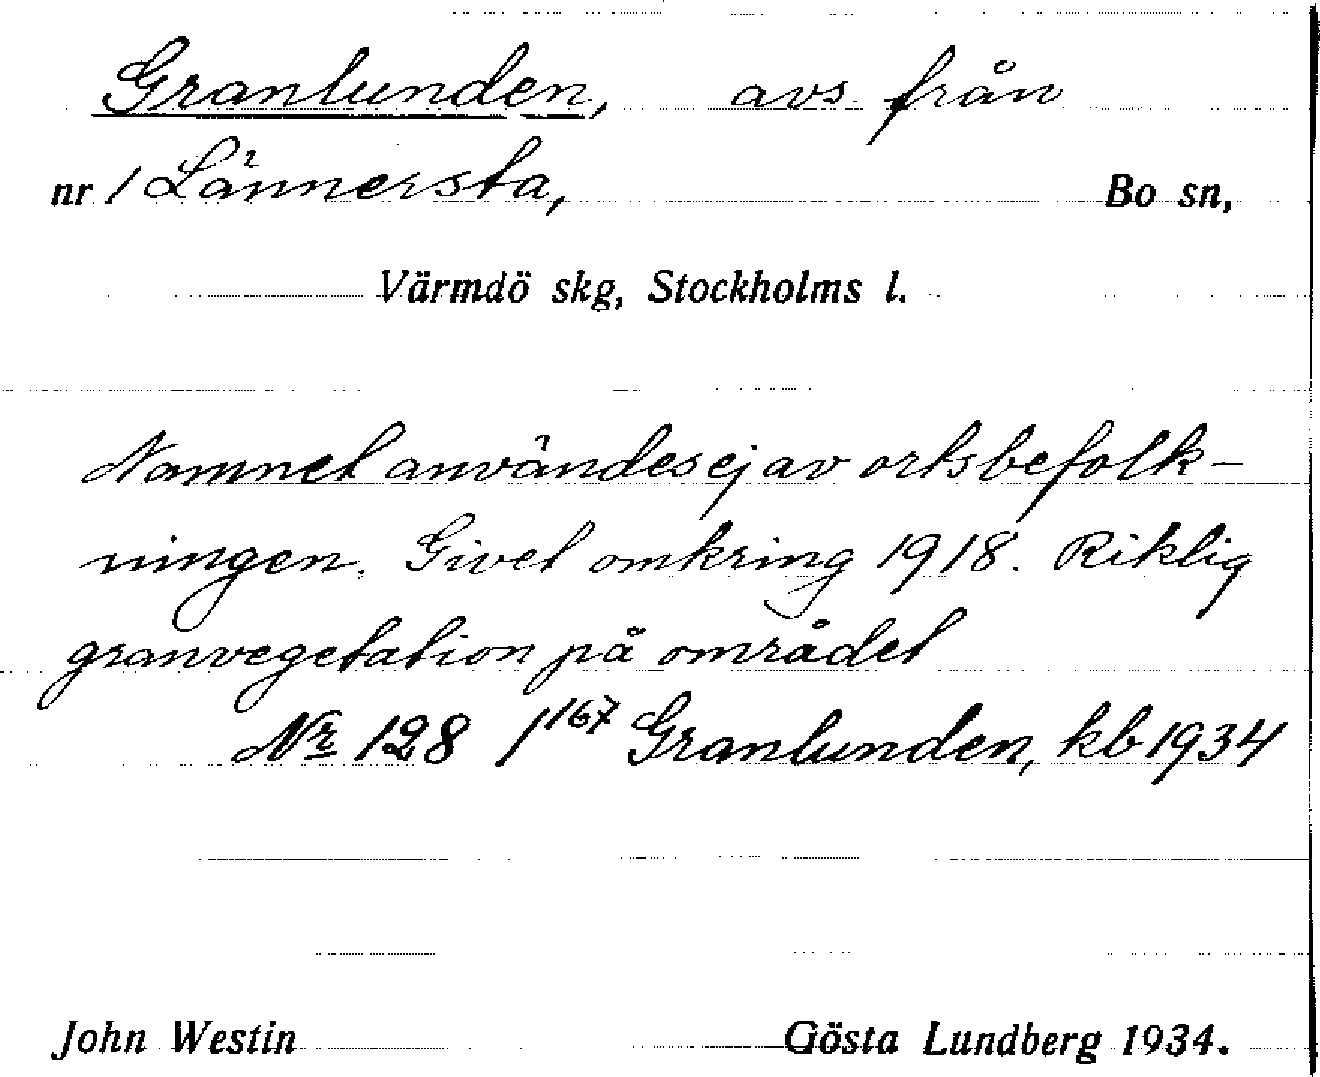 Granlunden, avs. från
nr 1 Lännersta, Bo sn,
Värmdö skg, Stockholms l.
Namnet användes ej av ortsbefolk-
ningen. Givet omkring 1918. Riklig
granvegetation på området
Nr 128 1167 Granlunden, kb 1934
John Westin Gösta Lundberg 1934.